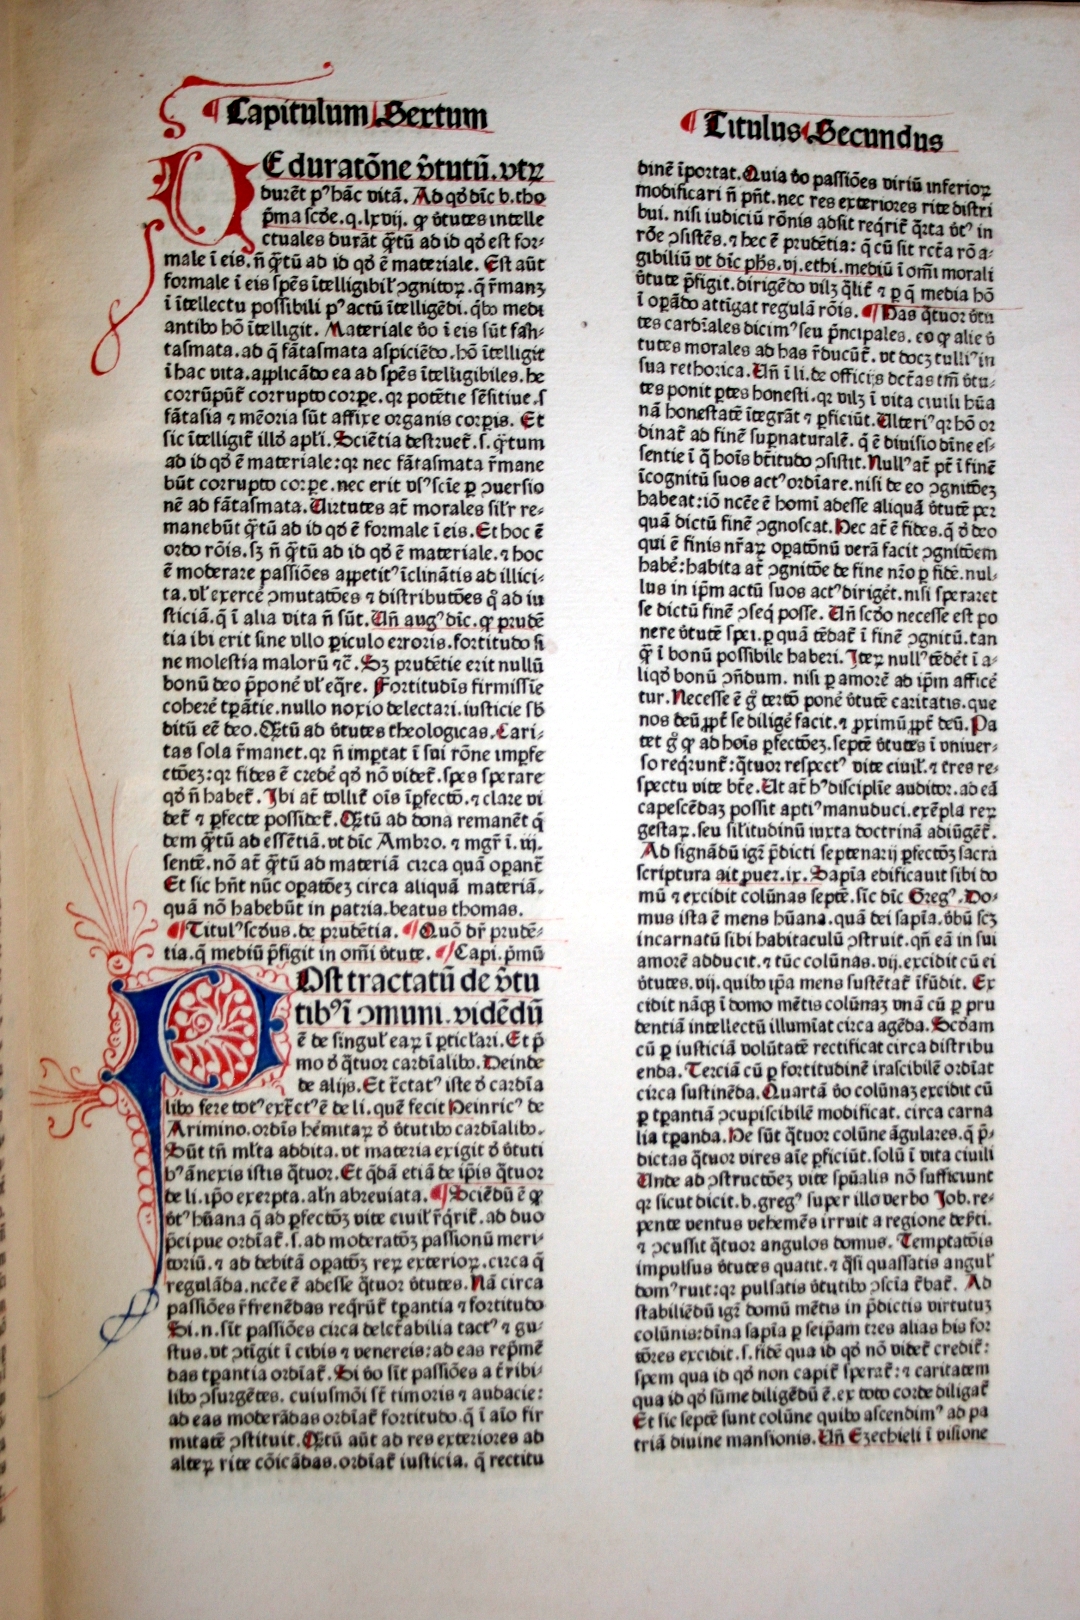 Capitulum Sextum
DE duratōne v̄tutū. vtꝝ
durēt pꝰ hāc vitā. Ad qd̄ dic̄ b. tho
p̄ma scd̄e. q. lxvij. ꝙ v̄tutes intelle
ctuales durāt q̄tū ad id qd̄ est for-
male ī eis. n̄ q̄tū ad id qd̄ ē materiale. Est aūt
formale ī eis sp̄es ītelligibil' ꝯgnitoꝝ. q̄ r̄manꝫ
ī ītellectu possibili pꝰ actū ītelligēdi. q̄bꝰ medi
antibꝰ hō ītelligit. Materiale v̄o ī eis sūt fan-
tasmata. ad q̄ fātasmata aspiciēdo. hō ītelligit
ī hac vita. applicādo ea ad sp̄es ītelligibiles. he
corrūpūt̄ corrupto corꝑe. qꝛ potētie sēsitiue. s
fātasia ⁊ mēoria sūt affixe organis corꝑis. Et
sic ītelligit̄ illd̄ apl'i. Sciētia destruet̄. s. q̄tum
ad id qd̄ ē materiale: qꝛ nec fātasmata r̄mane
būt corrupto corꝑe. nec erit vsꝰ scīe ꝑ ꝯuersio
nē ad fātasmata. Virtutes at̄ morales sil'r re-
manebūt q̄tū ad id qd̄ ē formale ī eis. Et hoc ē
ordo rōis. sꝫ n̄ q̄tū ad id qd̄ ē materiale. ⁊ hoc
ē moderare passiōes appetitꝰ īclinātis ad illici-
ta. vl' exercē ꝯmutatōes ⁊ distributōes q̄ ad iu
sticiā. q̄ ī alia vita n̄ sūt. Vn̄ augꝰ dic̄. ꝙ prudē
tia ibi erit sine vllo ꝑiculo erroris. fortitudo si
ne molestia malorū ⁊c̄. Sꝫ prudētie erit nullū
bonū deo p̄ponē vl' eq̄re. Fortitudīs firmissie
coherē tꝑātie. nullo noxio delectari. iusticie sb̄
ditū eē deo. Q̄tū ad v̄tutes theologicas. Cari-
tas sola r̄manet. qꝛ n̄ imp̄tat ī sui rōne impfe
ctōeꝫ: qꝛ fides ē credē qd̄ nō videt̄. spes sperare
qd̄ n̄ habet̄. Ibi at̄ tollit̄ oīs īꝑfectō. ⁊ clare vi
det̄ ⁊ ꝑfecte possidet̄. Q̄tū ad dona remanēt q̄
dem q̄tū ad essētiā. vt dic̄ Ambro. ⁊ mgr̄ ī. iij.
sentē. nō at̄ q̄tū ad materiā circa quā oꝑant̄
Et sic hn̄t nūc oꝑatōeꝫ circa aliquā materiā.
quā nō habebūt in patria. beatus thomas.
¶ Titulꝰ scd̄us. de prudētia. ¶ Quō dr̄ prudē-
tia. q̄ mediū p̄figit in om̄i v̄tute. ¶ Capi. p̄mū
POst tractatū de v̄tu
tibꝰ ī ꝯmuni. vidēdū
ē de singul' eaꝝ ī ꝑticl'ari. Et p̄
mo d̄ q̄tuor cardīalibꝰ. Deinde
de alijs. Et tr̄ctatꝰ iste d̄ cardīa
libꝰ fere totꝰ extr̄ctꝰ ē de li. quē fecit Heinricꝰ de
Arimino. ordīs hēmitaꝝ d̄ v̄tutibꝰ cardīalibꝰ.
Sūt tn̄ ml'ta addita. vt materia exigit d̄ v̄tuti
bꝰ ānexis istis q̄tuor. Et q̄dā etiā de ip̄is q̄tuor
de li. ip̄o exerpta. aln̄ abreuiata. ¶ Sciēdū ē ꝙ
v̄tꝰ hūana q̄ ad ꝑfectōꝫ vite ciuil' r̄qrit̄. ad duo
p̄cipue ordīat̄. s. ad moderatōꝫ passionū meri-
toriū. ⁊ ad debitā oꝑatōꝫ reꝝ exterioꝝ. circa q̄
regulāda. nc̄cē ē adesse q̄tuor v̄tutes. Nā circa
passiōes r̄frenēdas reqrūt̄ tꝑantia ⁊ fortitudo
Si. n. sīt passiōes circa delct̄abilia tactꝰ ⁊ gu-
stus. vt ꝯtīgit ī cibis ⁊ venereis: ad eas rep̄mē
das tꝑantia ordīat̄. Si v̄o sīt passiōes a tr̄ibi-
libꝰ ꝯsurgētes. cuiusmōi st̄ timoris ⁊ audacie:
ad eas moderādas ordīat̄ fortitudo. q̄ ī aīo fir
mitatē ꝯstituit. Q̄tū aūt ad res exteriores ad
alteꝝ rite cōicādas. ordīat̄ iusticia. q̄ rectitu
¶ Titulus Secundus
dinē īportat. Quia v̄o passiōes viriū inferioꝝ
modificari n̄ pn̄t. nec res exteriores rite distri
bui. nisi iudiciū rōnis adsit reqrit̄ q̄rta v̄tꝰ in
rōe ꝯsistēs. ⁊ hec ē prudētia: q̄ cū sit rct̄a rō a-
gibiliū vt dic̄ phs̄. vj. ethi. mediū ī om̄i morali
v̄tute p̄figit. dirigēdo vilꝫ q̄lit̄ ⁊ ꝑ q̄ media hō
ī oꝑādo attīgat regulā rōis. ¶ Has q̄tuor v̄tu
tes cardīales dicimꝰ seu p̄ncipales. eo ꝙ alie v̄
tutes morales ad has r̄ducūt̄. vt docꝫ tulliꝰ in
sua rethorica. Vn̄ ī li. de officijs dct̄as tm̄ v̄tu-
tes ponit ꝑtes honesti. qꝛ vilꝫ ī vita ciuili hūa
nā honestatē ītegrāt ⁊ ꝑficiūt. Vlteriꝰ qꝛ hō or
dinat̄ ad finē suꝑnaturalē. q̄ ē diuisio dīne es-
sentie ī q̄ hoīs bt̄itudo ꝯsistit. Nullꝰ at̄ pt̄ ī finē
īcognitū suos actꝰ ordīare. nisi de eo ꝯgnitōeꝫ
habeat: iō nc̄cē ē homī adesse aliquā v̄tutē ꝑ
quā dictū finē ꝯgnoscat. Hec at̄ ē fides. q̄ d̄ deo
qui ē finis nr̄aꝝ oꝑatōnū verā facit ꝯgnitōem
habē: habita at̄ ꝯgnitōe de fine nr̄o ꝑ fidē. nul-
lus in ip̄m actū suos actꝰ dirigēt. nisi speraret
se dictū finē ꝯseq̄ posse. Vn̄ scd̄o necesse est po
nere v̄tutē spei. ꝑ quā tēdat̄ ī finē ꝯgnitū. tan
q̄ ī bonū possibile haberi. Iteꝝ nullꝰ tēdēt ī a-
liqd̄ bonū ꝯn̄dum. nisi ꝑ amorē ad ip̄m afficē
tur. Necesse ē g̊ tertō ponē v̄tutē caritatis. que
nos deū ꝓpt̄ se diligē facit. ⁊ primū ꝓpt̄ deū. Pa
tet g̊ ꝙ ad hoīs ꝑfectōeꝫ. septē v̄tutes ī vniuer-
so reqrunt̄: q̄tuor respectꝰ vite ciuil' ⁊ tres re-
spectu vite bt̄e. Ut at̄ hꝰ disciplīe auditor. ad eā
capescēdaꝫ possit aptiꝰ manuduci. exēpla reꝝ
gestaꝝ. seu sil'itudinū iuxta doctrinā adiūgēt̄.
Ad signādū igr̄ p̄dicti septenarij ꝑfectōꝫ sacra
scriptura ait ꝓuer. ix. Sapīa edificauit sibi do
mū ⁊ excidit colūnas septē. sic dic̄ Gregꝰ. Do-
mus ista ē mens hūana. quā dei sapīa. v̄bū scꝫ
incarnatū sibi habitaculū ꝯstruit. qn̄ eā in sui
amorē adducit. ⁊ tūc colūnas. vij. excidit cū ei
v̄tutes. vij. quibꝰ ip̄a mens sustētat̄ īfūdit. Ex
cidit nāqꝫ ī domo mētis colūnaꝫ vnā cū ꝑ pru
dentiā intellectū illumīat circa agēda. Scd̄am
cū ꝑ iusticiā volūtatē rectificat circa distribu
enda. Terciā cū ꝑ fortitudinē irascibilē ordīat
circa sustinēda. Quartā v̄o colūnaꝫ excidit cū
ꝑ tꝑantiā ꝯcupiscibilē modificat. circa carna
lia tꝑanda. He sūt q̄tuor colūne āgulares. q̄ p̄-
dictas q̄tuor vires aīe ꝑficiūt. solū ī vita ciuili
Unde ad ꝯstructōeꝫ vite sp̄ualis nō sufficiunt
qꝛ sicut dicit. b. gregꝰ super illo verbo Job. re-
pente ventus vehemēs irruit a regione deserti.
⁊ ꝯcussit q̄tuor angulos domus. Temptatōis
impulsus v̄tutes quatit. ⁊ q̄si quassatis angul'
domꝰ ruit: qꝛ pulsatis v̄tutibꝰ ꝯscīa t̄bat̄. Ad
stabiliēdū igr̄ domū mētis in p̄dictis virtutuꝫ
colūnis: dīna sapīa ꝑ seip̄am tres alias his for
tōres excidit. s. fidē qua id qd̄ nō videt̄ credit̄:
spem qua id qd̄ non capit̄ sperat̄: ⁊ caritatem
qua id qd̄ sūme diligēdū ē. ex toto corde diligat̄
Et sic septē sunt colūne quibꝰ ascendimꝰ ad pa
triā diuine mansionis. Vn̄ Ezechieli ī visione